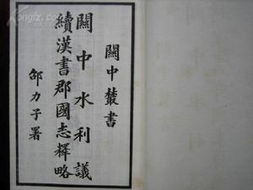 關中叢書
關中水利議
續漢書郡國志釋略
邵力子署